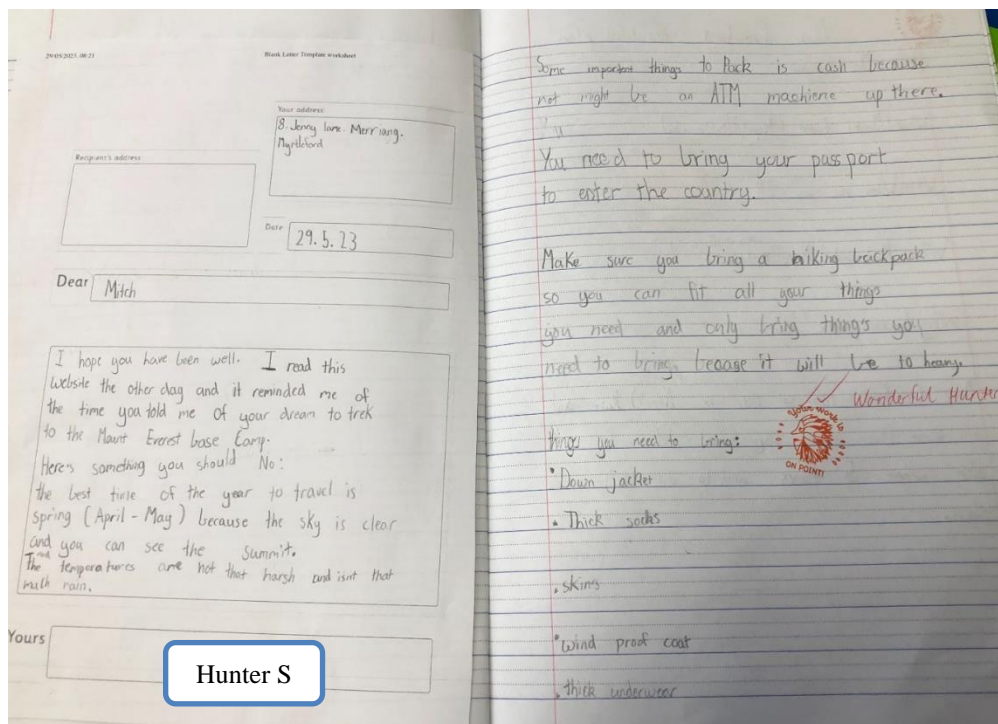 29/05/2023, 08:21
Blank Letter Template worksheet
Your address
8. Jenny lane. Merriang.
Myrtleford
Recipient's address
Date
29.5.23
Dear
Mitch
I hope you have been well. I read this
website the other day and it reminded me of
the time you told me of your dream to trek
to the Mount Everest base Camp.
Here's something you should No:
the best time of the year to travel is
spring (April - May) because the sky is clear
and you can see the summit.
The temperatures are not that harsh and isnt that
much rain.
Yours
Hunter S
Some important things to Pack is cash because
not might be an ATM machiene up there.
You need to bring your passport
to enter the country.
Make sure you bring a hiking backpack
so you can fit all your things
you need and only bring thing's you
need to bring, becaase it will be to heavy.
Wonderful Hunter
Your work is
ON POINT!
things you need to bring:
• Down jacket
• Thick socks
• skins
• wind proof coat
• thick underwear